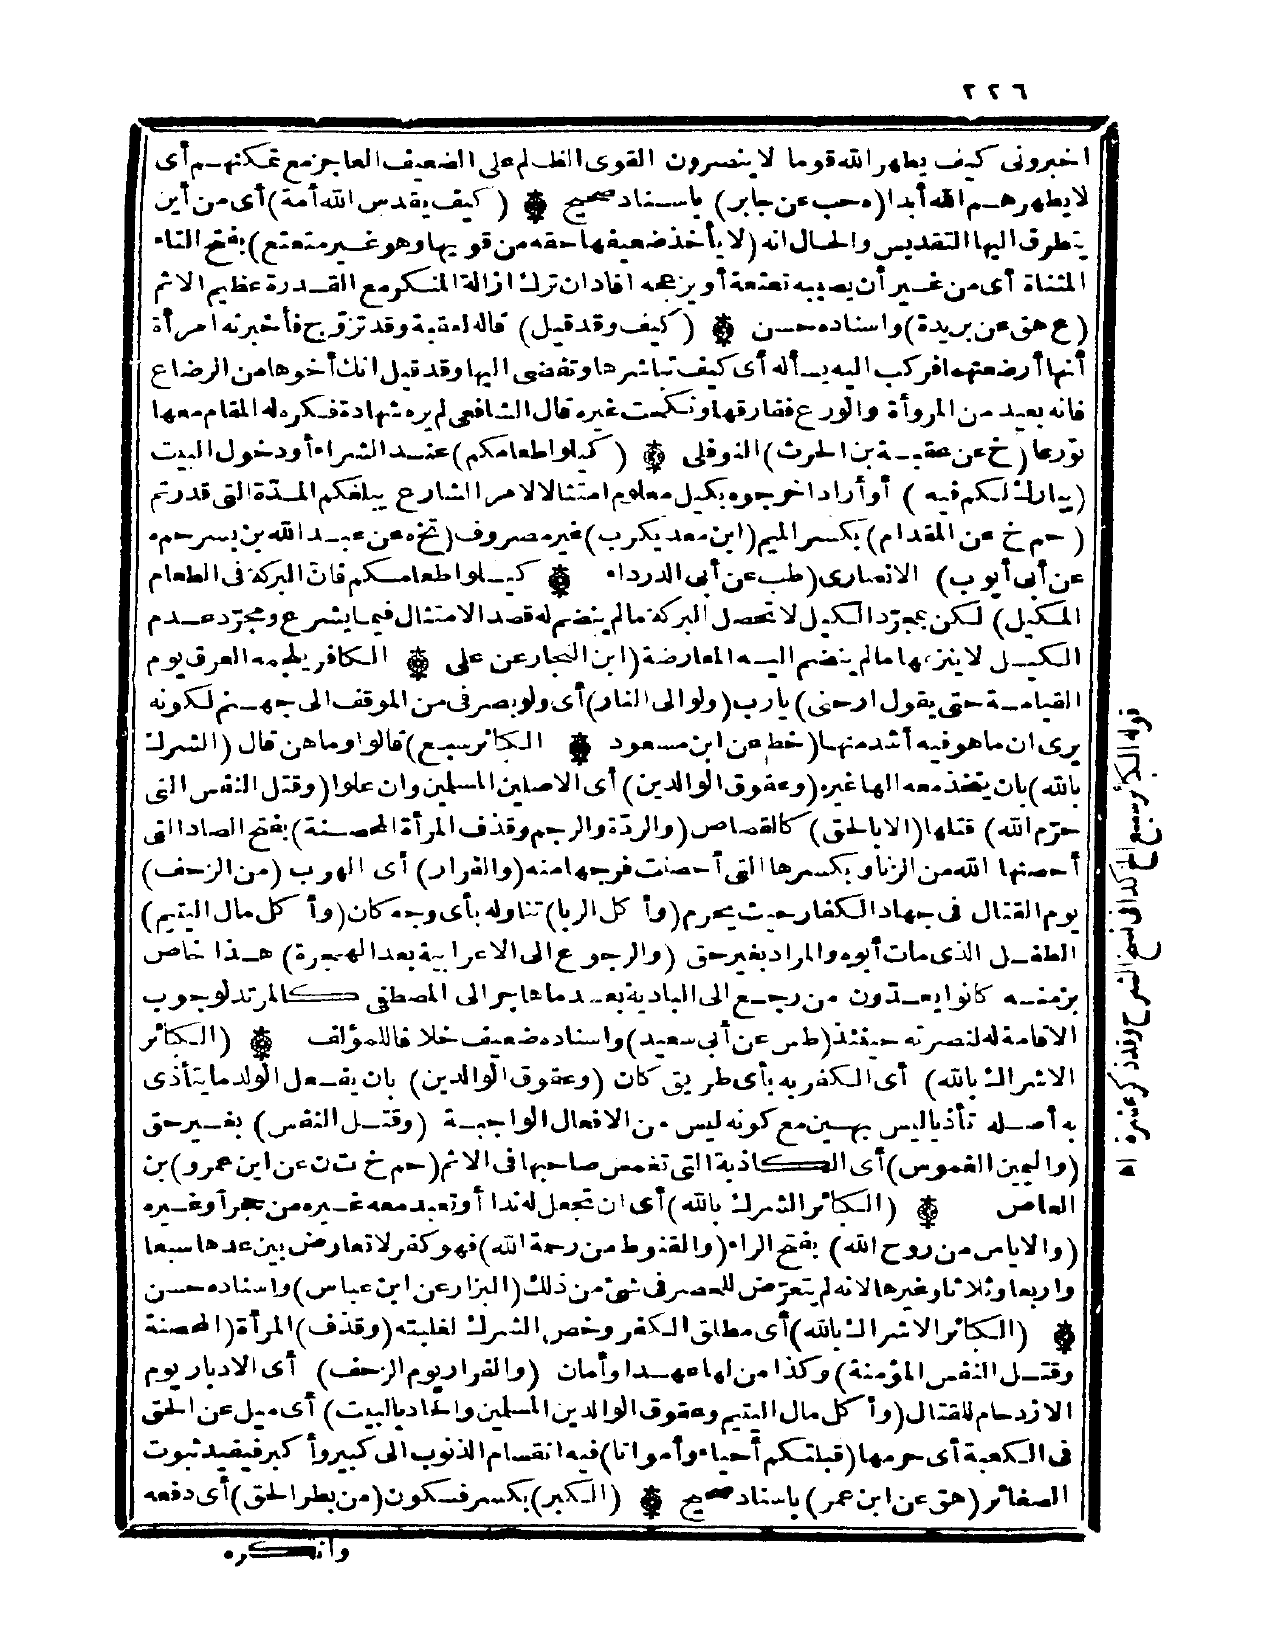 ٢٢٦
اخبرونى كيف يطهر الله قوما لا ينصرون القوى الظالم على الضعيف العاجز مع تمكنهم أى
لا يطهرهم الله أبدا (ه حب عن جابر) باسناد صحيح ۞ (كيف يقدس الله أمة) أى من أين
يتطرق اليها التقديس والحال انه (لا يأخذ ضعيفها حقه من قويها وهو غير متعتع) بفتح التاء
المثناة أى من غير أن يصيبه تعتعة أو يزعجه افاد ان ترك ازالة المنكر مع القدرة عظيم الاثم
(ع هق عن بريدة) واسناده حسن ۞ (كيف وقد قيل) قاله لعقبة وقد تزوّج فأخبرته امرأة
أنها أرضعتهما فركب اليه يسأله أى كيف تباشرها وتفضى اليها وقد قيل انك أخوها من الرضاع
فانه بعيد من المروأة والورع ففارقها ونكحت غيره قال الشافعى لم يره شهادة فكره له المقام معها
تورعا (خ عن عقبة بن الحرث) النوفلى ۞ (كيلوا طعامكم) عند الشراء أو دخول البيت
(يبارك لكم فيه) أو أراد اخرجوه بكيل معلوم امتثالا لامر الشارع يبلغكم المدة التى قدرتم
(حم خ عن المقدام) بكسر الميم (ابن معد يكرب) غير مصروف (تخ ه عن عبد الله بن بسر حم ه
عن أبى أيوب) الانصارى (طب عن أبى الدرداء ۞ كيلوا طعامكم فانّ البركة فى الطعام
المكيل) لكن بمجرّد الكيل لا تحصل البركة ما لم ينضم له قصد الامتثال فيما يشرع ومجرّد عدم
الكيل لا ينزعها ما لم ينضم اليه المعارضة (ابن النجار عن على ۞ الكافر يلجمه العرق يوم
القيامة حتى يقول ارحنى) يارب (ولو الى النار) أى ولو بصرفى من الموقف الى جهنم لكونه
يرى ان ما هو فيه أشد منها (خط عن ابن مسعود ۞ الكبائر سبع) قالوا وما هن قال (الشرك
بالله) بان يتخذ معه الها غيره (وعقوق الوالدين) أى الاصلين المسلمين وان علوا (وقتل النفس التى
حرّم الله) قتلها (الا بالحق) كالقصاص (والردّة والرجم وقذف المرأة المحصنة) بفتح الصاد التى
أحصنها الله من الزنا وبكسرها التى أحصنت فرجها منه (والفرار) أى الهرب (من الزحف)
يوم القتال فى جهاد الكفار حيث يحرم (وأكل الربا) تناوله بأى وجه كان (وأكل مال اليتيم)
الطفل الذى مات أبوه والمراد بغير حق (والرجوع الى الاعرابية بعد الهجرة) هذا خاص
بزمنه كانوا يعدّون من رجع الى البادية بعد ما هاجر الى المصطفى كالمرتد لوجوب
الاقامة له لنصرته حينئذ (طس عن أبى سعيد) واسناده ضعيف خلافا للمؤلف ۞ (الكبائر
الاشراك بالله) أى الكفر به بأى طريق كان (وعقوق الوالدين) بان يفعل الولد ما يتأذى
به أصله تأذيا ليس بهين مع كونه ليس من الافعال الواجبة (وقتل النفس) بغير حق
(واليمين الغموس) أى الكاذبة التى تغمس صاحبها فى الاثم (حم خ ت ن عن ابن عمرو) بن
العاص ۞ (الكبائر الشرك بالله) أى ان تجعل له ندا أو تعبد معه غيره من حجر أو غيره
(والاياس من روح الله) بفتح الراء (والقنوط من رحمة الله) فهو كفر لا تعارض بين عدها سبعا
واربعا وثلاثا وغيرها لانه لم يتعرّض للحصر فى شئ من ذلك (البزار عن ابن عباس) واسناده حسن
۞ (الكبائر الاشراك بالله) أى مطلق الكفر وخص الشرك لغلبته (وقذف) المرأة (المحصنة
وقتل النفس المؤمنة) وكذا من لها عهد أو أمان (والفرار يوم الزحف) أى الادبار يوم
الازدحام للقتال (وأكل مال اليتيم وعقوق الوالدين المسلمين والحاد بالبيت) أى ميل عن الحق
فى الكعبة أى حرمها (قبلتكم أحياء وأمواتا) فيه انقسام الذنوب الى كبير وأكبر فيفيد ثبوت
الصغائر (هق عن ابن عمر) باسناد صحيح ۞ (الكبر) بكسر فسكون (من بطر الحق) أى دفعه
وانكره
قوله الكبائر سبع الخ كذا فى نسخ الشرح وقد ذكر عشرة اه